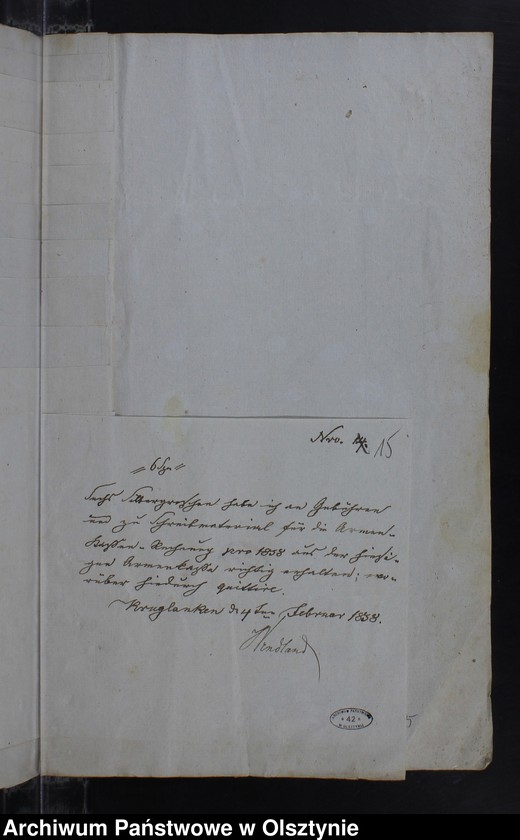 Nro. 14. 15
= 6 Sgr =
Sechs Silbergroschen habe ich an Gebühren
und zu Schreibmaterial für die Armen-
Kassen-Rechnung pro 1838 aus der hiesi-
gen Armenkasse richtig erhalten; wo-
rüber hiedurch quittire.
Kruglanken d 4ten Februar 1838.
Wendland
ARCHIWUM PAŃSTWOWE
* 42 *
W OLSZTYNIE
Archiwum Państwowe w Olsztynie